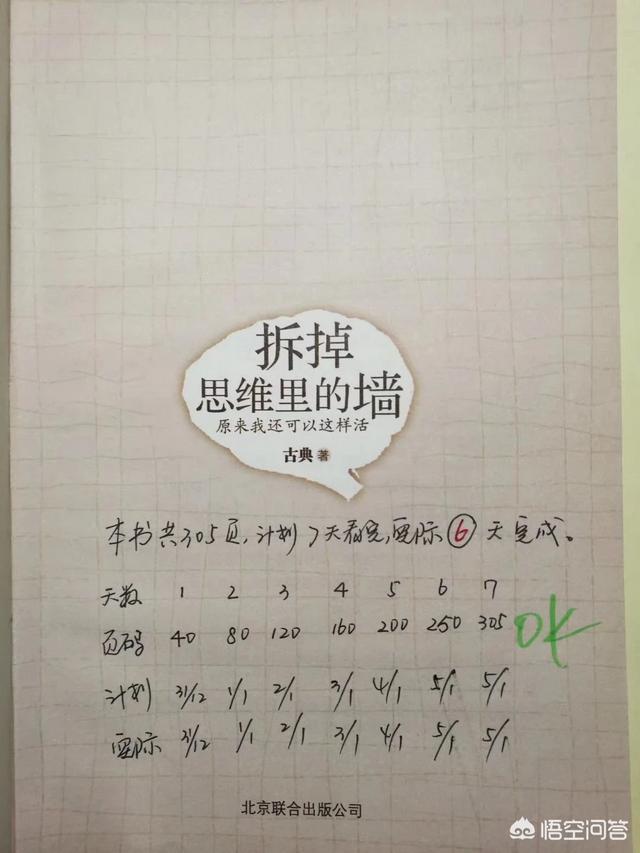 拆掉
思维里的墙
原来我还可以这样活
古典 著
本书共305页,计划7天看完,实际6天完成。
天数 1 2 3 4 5 6 7
页码 40 80 120 160 200 250 305
OK
计划 31/12 1/1 2/1 3/1 4/1 5/1 5/1
实际 31/12 1/1 2/1 3/1 4/1 5/1 5/1
北京联合出版公司
悟空问答